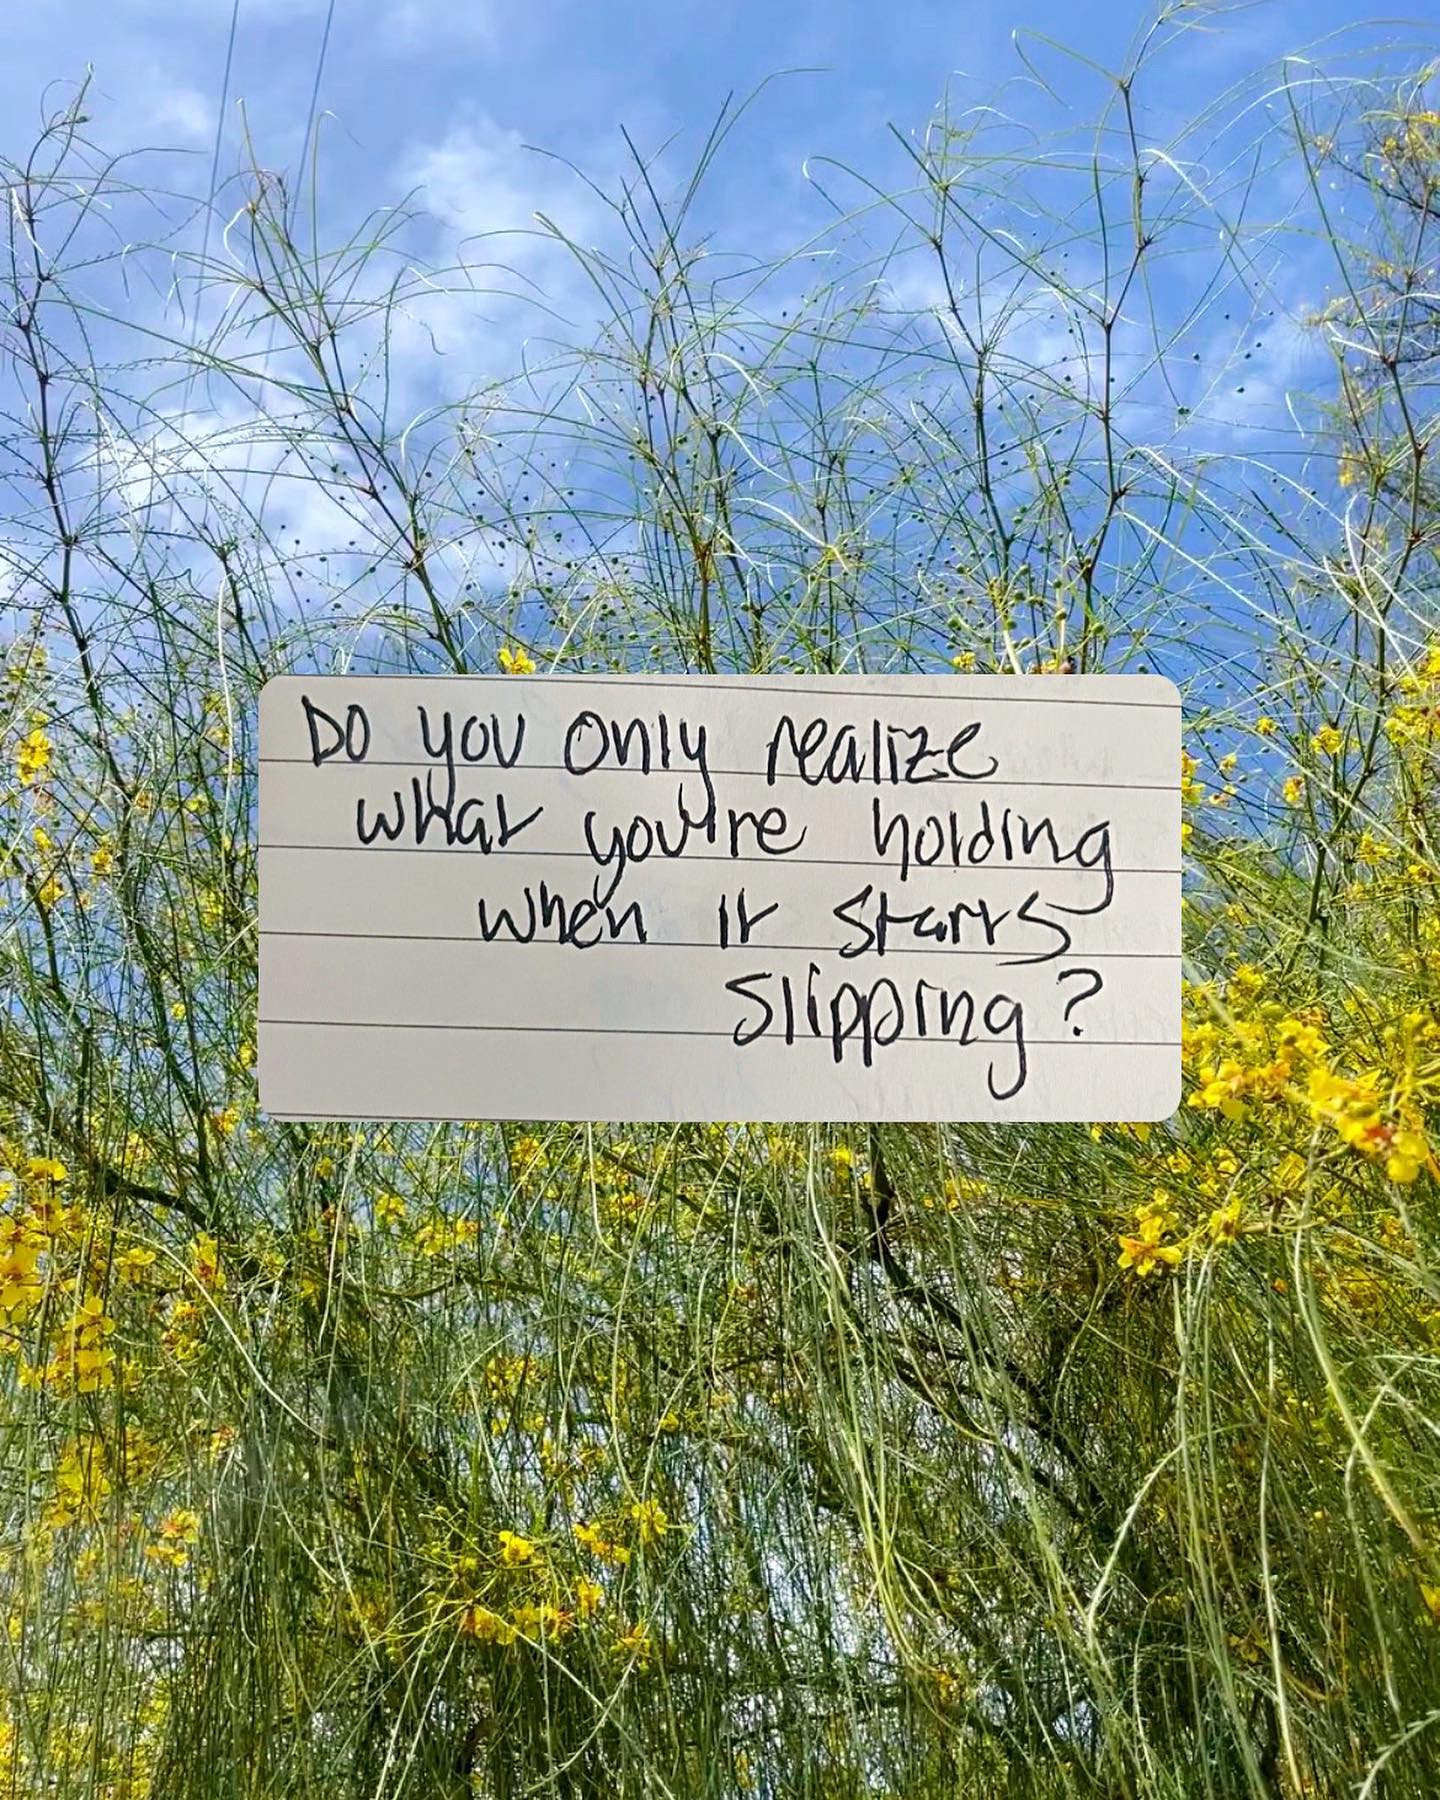 Do you only realize
what you're holding
when it starts
slipping?